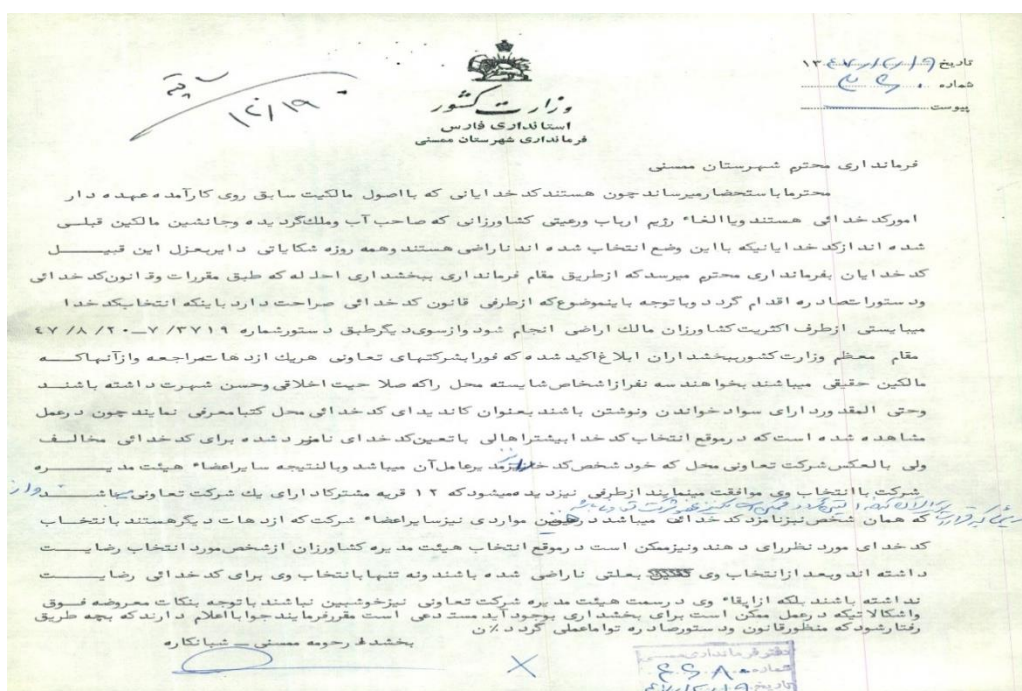 تاریخ ۱۳۴۷/۱۲/۱۹
شماره
پیوست
سابقه
۱۲/۱۹
وزارت کشور
استانداری فارس
فرمانداری شهرستان ممسنی
فرمانداری محترم شهرستان ممسنی
محترما باستحضار میرساند چون هستند کدخدایانی که با اصول مالکیت سابق روی کار آمده عهده دار
امور کدخدائی هستند و با الغاء رژیم ارباب و رعیتی کشاورزانی که صاحب آب و ملك گردیده و جانشین مالکین قبلی
شده اند از کدخدایانیکه با این وضع انتخاب شده اند ناراضی هستند و همه روزه شکایاتی دایر بعزل این قبیل
کدخدایان بفرمانداری محترم میرسد که از طریق مقام فرمانداری ببخشداری احاله که طبق مقررات و قانون کدخدائی
و دستورات صادره اقدام گردد و با توجه باینموضوع که از طرفی قانون کدخدائی صراحت دارد باینکه انتخاب کدخدا
میبایستی از طرف اکثریت کشاورزان مالك اراضی انجام شود و از سوی دیگر طبق دستور شماره ۷/۳۷۱۹–۴۷/۸/۲۰
مقام معظم وزارت کشور ببخشداران ابلاغ اکید شده که فورا بشرکتهای تعاونی هریك از دهات مراجعه و از آنها که
مالکین حقیقی میباشند بخواهند سه نفر از اشخاص شایسته محل را که صلاحیت اخلاقی و حسن شهرت داشته باشند
و حتی المقدور دارای سواد خواندن و نوشتن باشند بعنوان کاندیدای کدخدائی محل کتبا معرفی نمایند چون در عمل
مشاهده شده است که در موقع انتخاب کدخدا بیشتر اهالی با تعین کدخدای نامزد شده برای کدخدائی مخالف
ولی بالعکس شرکت تعاونی محل که خود شخص کدخدا نیز مدیر عامل آن میباشد و بالنتیجه سایر اعضاء هیئت مدیره
شرکت با انتخاب وی موافقت مینمایند از طرفی نیز دیده میشود که ۱۲ قریه مشترکا دارای یك شرکت تعاونی میباشند
که همان شخص نیز نامزد کدخدائی میباشد در همین مواردی نیز سایر اعضاء شرکت که از دهات دیگر هستند بانتخاب
کدخدای مورد نظر رای دهند و نیز ممکن است در موقع انتخاب هیئت مدیره کشاورزان از شخص مورد انتخاب رضایت
داشته اند و بعد از انتخاب وی بعلتی ناراضی شده باشند و نه تنها بانتخاب وی برای کدخدائی رضایت
نداشته باشند بلکه از ابقاء وی در سمت هیئت مدیره شرکت تعاونی نیز خوشبین نباشند با توجه بنکات معروضه فوق
و اشکالاتیکه در عمل ممکن است برای بخشداری بوجود آید مستدعی است مقرر فرمایند جوابا اعلام دارند که بچه طریق
رفتار شود که منظور قانون و دستور صادره تواما عملی گردد ٪ن
بخشدار حومه ممسنی – شبانکاره
دفتر فرمانداری ممسنی
شماره
تاریخ